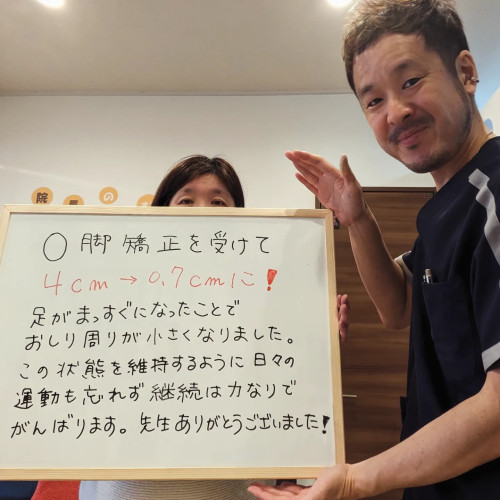 院長の
〇脚矯正を受けて
4cm→0.7cmに!
足がまっすぐになったことで
おしり周りが小さくなりました。
この状態を維持するように日々の
運動も忘れず継続は力なりで
がんばります。先生ありがとうございました!